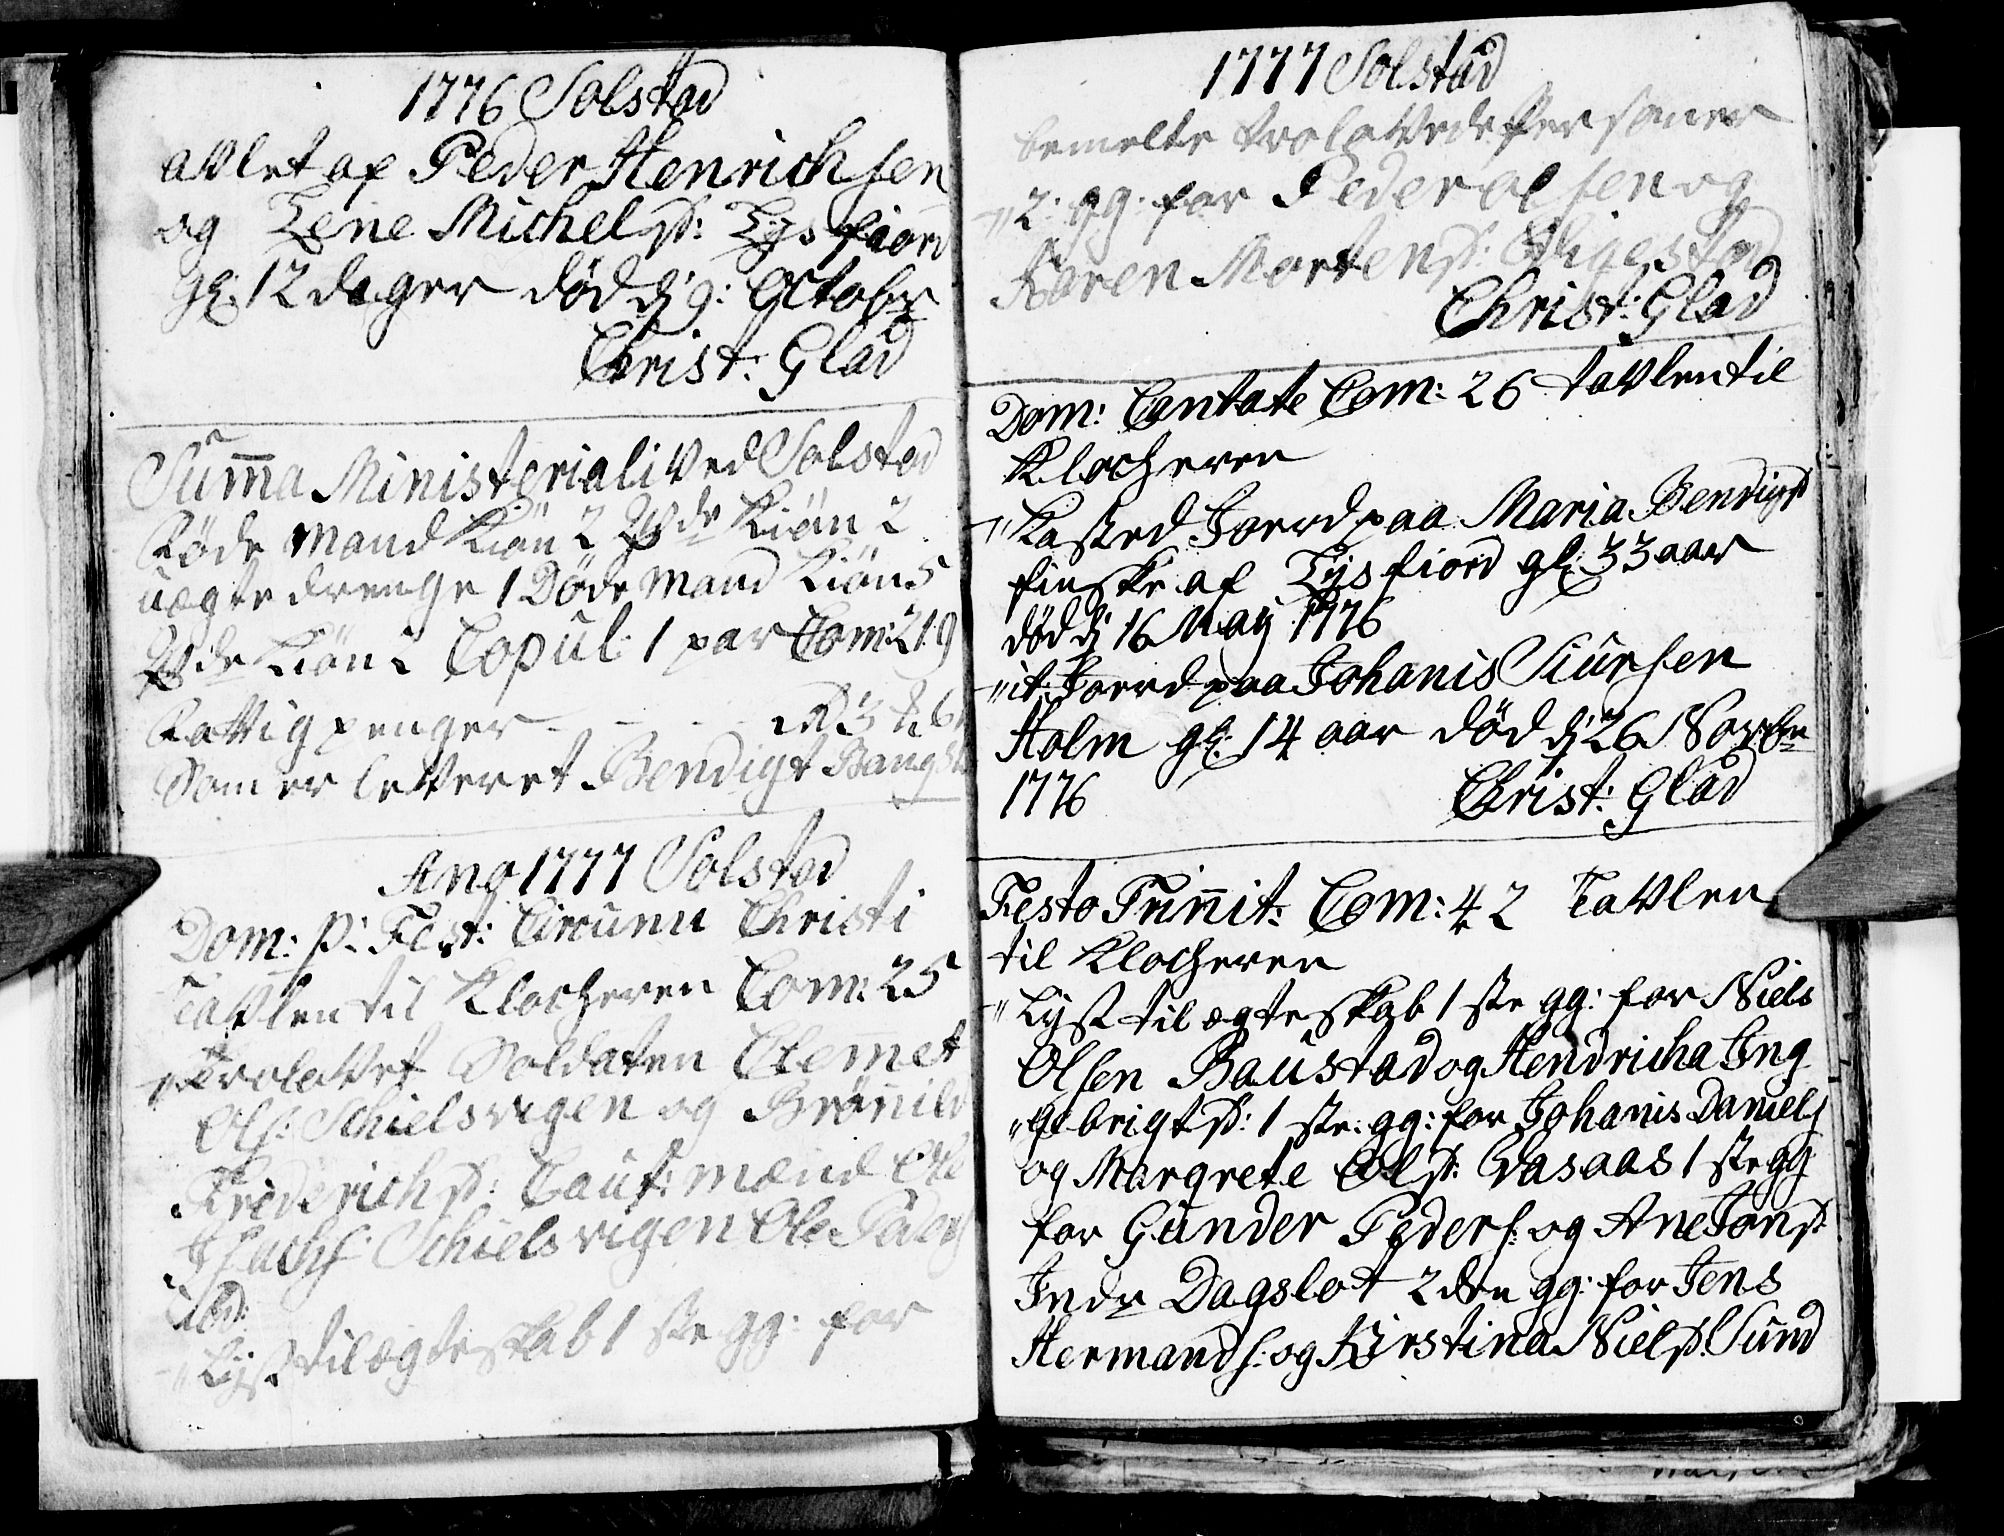 1776 Solstad
avlet af Peder Henrichsen
og Lene Michelsd: Lysfiord
gl: 12 dager død dj 9: Octobr
Christ: Glad
Summa Ministeriali ved Solstad
Føde Mand Kiøn 2 Qvde Kiøn 2
uægte drenge 1 Døde Mand Kiøn 5
Qvde Kiøn 2 Copul: 1 par Com: 219
Fattig penger - - -
Som er leveret Bendigt Bangst
Ano 1777 Solstad
Dom: p: Fest: Circumc Christi
Tavlen til Klocheren Com: 25
" Trolovet Soldaten Clemet
Ols: Schielsvigen og Brønnild
Friderichsd: Caut: mænd Ole
Schielsvigen Ole
ibd:
" Lyst til ægteskab 1 ste gg: for
1777 Solstad
bemelte trolovede Personer
" 2: gg: for Peder Olsen og
Karen Mortensd:
Christ: Glad
Dom: Cantate Com: 26 tavlen til
Klocheren
" Kasted Jord paa Maria Bendigtsd
finske af Lysfiord gl: 33 aar
død dj 16 May 1776
" it: Jord paa Johanis Siursen
Holm gl: 14 aar død dj 26 Novbr
1776 Christ: Glad
Festo Trinnit: Com: 42 Tavlen
til Klocheren
" Lyst til ægteskab 1 ste gg: for Niels
Olsen Baustad og Hendricha Ing
" gebrigtsd: 1 ste: gg: for Johanis Daniels
og Margrete Olsd: Qvasaas 1 ste gg
for Gunder Peders: og Ane Jonsd
Indr Dagslot 2den gg: for Jens
Hermands: og Kirstina Nielsd: Sund